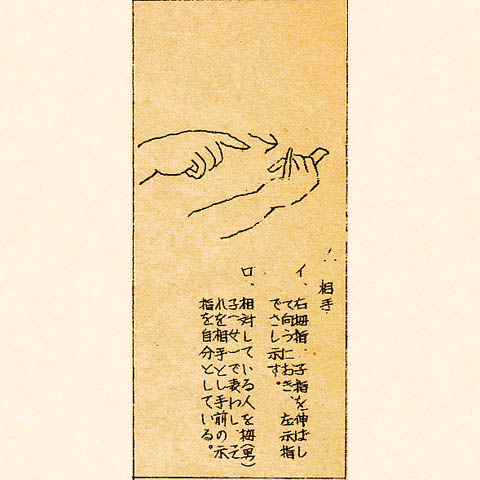 相手
イ、右拇指、子指を伸ばし
て向うにおき、左示指
でさし示す。
ロ、相対している人を拇(男)
子(女)で表わし、そ
れを相手とし手前の示
指を自分としている。